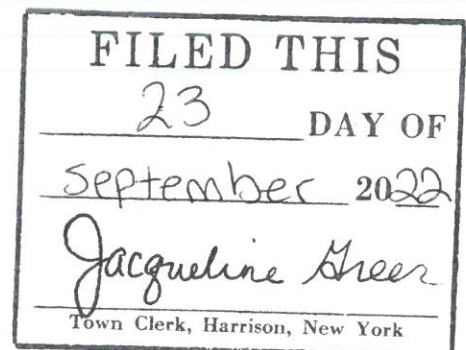 FILED THIS
23 DAY OF
September 2022
Jacqueline Greer
Town Clerk, Harrison, New York